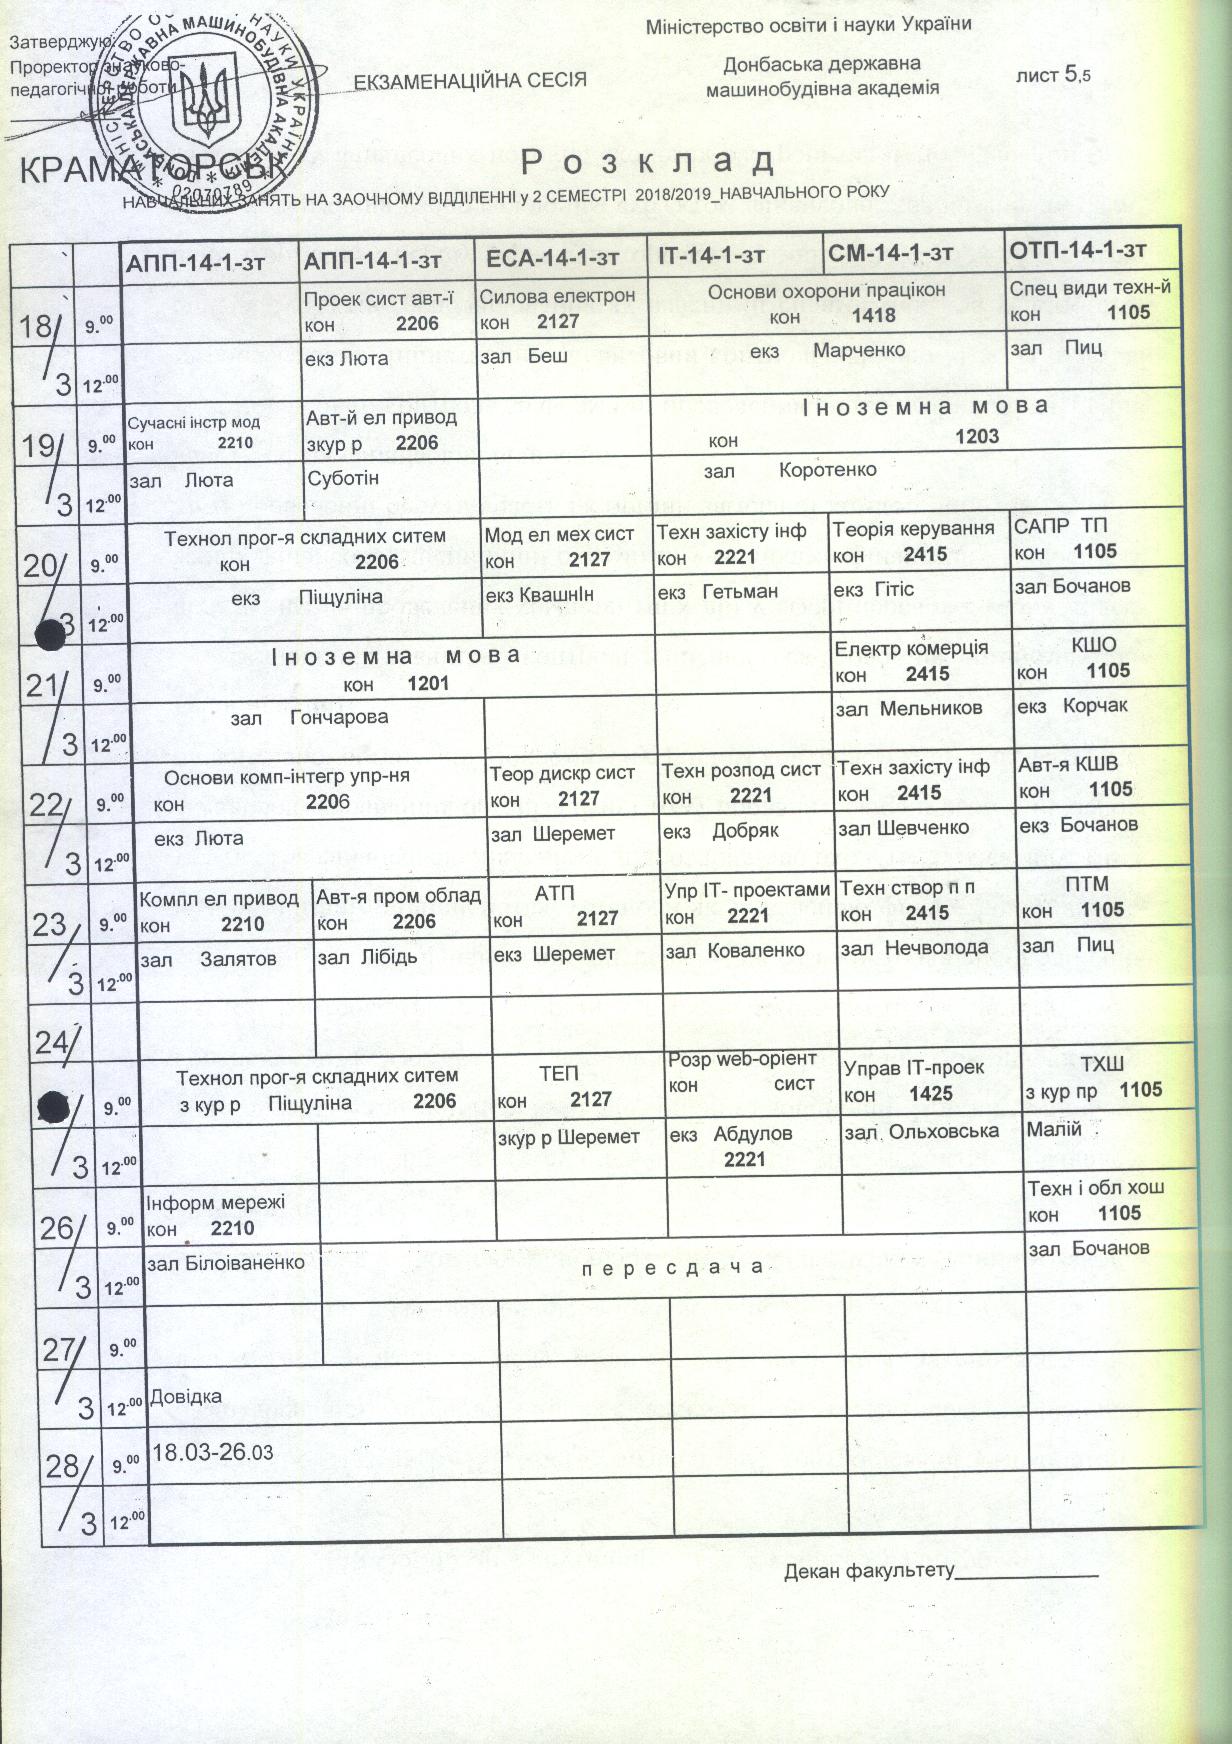 Міністерство освіти і науки України
Затверджую:
Проректор з науково-
педагогічної роботи
ЕКЗАМЕНАЦІЙНА СЕСІЯ
Донбаська державна
машинобудівна академія
лист 5,5
02070789
КРАМАТОРСЬК
Р о з к л а д
НАВЧАЛЬНИХ ЗАНЯТЬ НА ЗАОЧНОМУ ВІДДІЛЕННІ у 2 СЕМЕСТРІ 2018/2019_НАВЧАЛЬНОГО РОКУ
АПП-14-1-зт АПП-14-1-зт ЕСА-14-1-зт ІТ-14-1-зт СМ-14-1-зт ОТП-14-1-зт
18/3 9.00
Проек сист авт-ї Силова електрон Основи охорони працікон Спец види техн-й
кон 2206 кон 2127 кон 1418 кон 1105
12.00 екз Люта зал Беш екз Марченко зал Пиц
19/3 9.00
Сучасні інстр мод Авт-й ел привод І н о з е м н а м о в а
кон 2210 зкур р 2206 кон 1203
12.00 зал Люта Суботін зал Коротенко
20/3 9.00
Технол прог-я складних ситем Мод ел мех сист Техн захісту інф Теорія керування САПР ТП
кон 2206 кон 2127 кон 2221 кон 2415 кон 1105
12.00 екз Піщуліна екз КвашнІн екз Гетьман екз Гітіс зал Бочанов
21/3 9.00
І н о з е м на м о в а Електр комерція КШО
кон 1201 кон 2415 кон 1105
12.00 зал Гончарова зал Мельников екз Корчак
22/3 9.00
Основи комп-інтегр упр-ня Теор дискр сист Техн розпод сист Техн захісту інф Авт-я КШВ
кон 2206 кон 2127 кон 2221 кон 2415 кон 1105
12.00 екз Люта зал Шеремет екз Добряк зал Шевченко екз Бочанов
23/3 9.00
Компл ел привод Авт-я пром облад АТП Упр ІТ- проектами Техн створ п п ПТМ
кон 2210 кон 2206 кон 2127 кон 2221 кон 2415 кон 1105
12.00 зал Залятов зал Лібідь екз Шеремет зал Коваленко зал Нечволода зал Пиц
24/
/3 9.00
Технол прог-я складних ситем ТЕП Розр web-орієнт Управ ІТ-проек ТХШ
з кур р Піщуліна 2206 кон 2127 кон сист кон 1425 з кур пр 1105
12.00 зкур р Шеремет екз Абдулов зал. Ольховська Малій
2221
26/3 9.00
Інформ мережі Техн і обл хош
кон 2210 кон 1105
12.00 зал Білоіваненко п е р е с д а ч а зал Бочанов
27/3 9.00
12.00 Довідка
28/3 9.00 18.03-26.03
12.00
Декан факультету____________